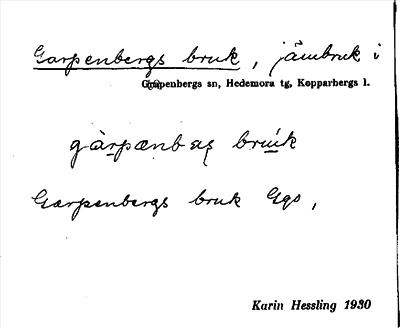 Garpenbergs bruk, järnbruk i
Garpenbergs sn, Hedemora tg, Kopparbergs l.
gàrpænbærs brúk
Garpenbergs bruk Ggs,
Karin Hessling 1930